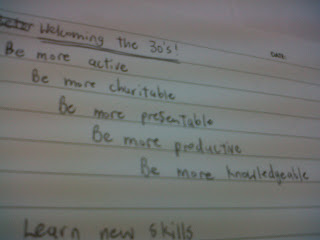 Welcoming the 30's!
DATE:
Be more active
Be more charitable
Be more presentable
Be more productive
Be more knowledgeable
Learn new skills